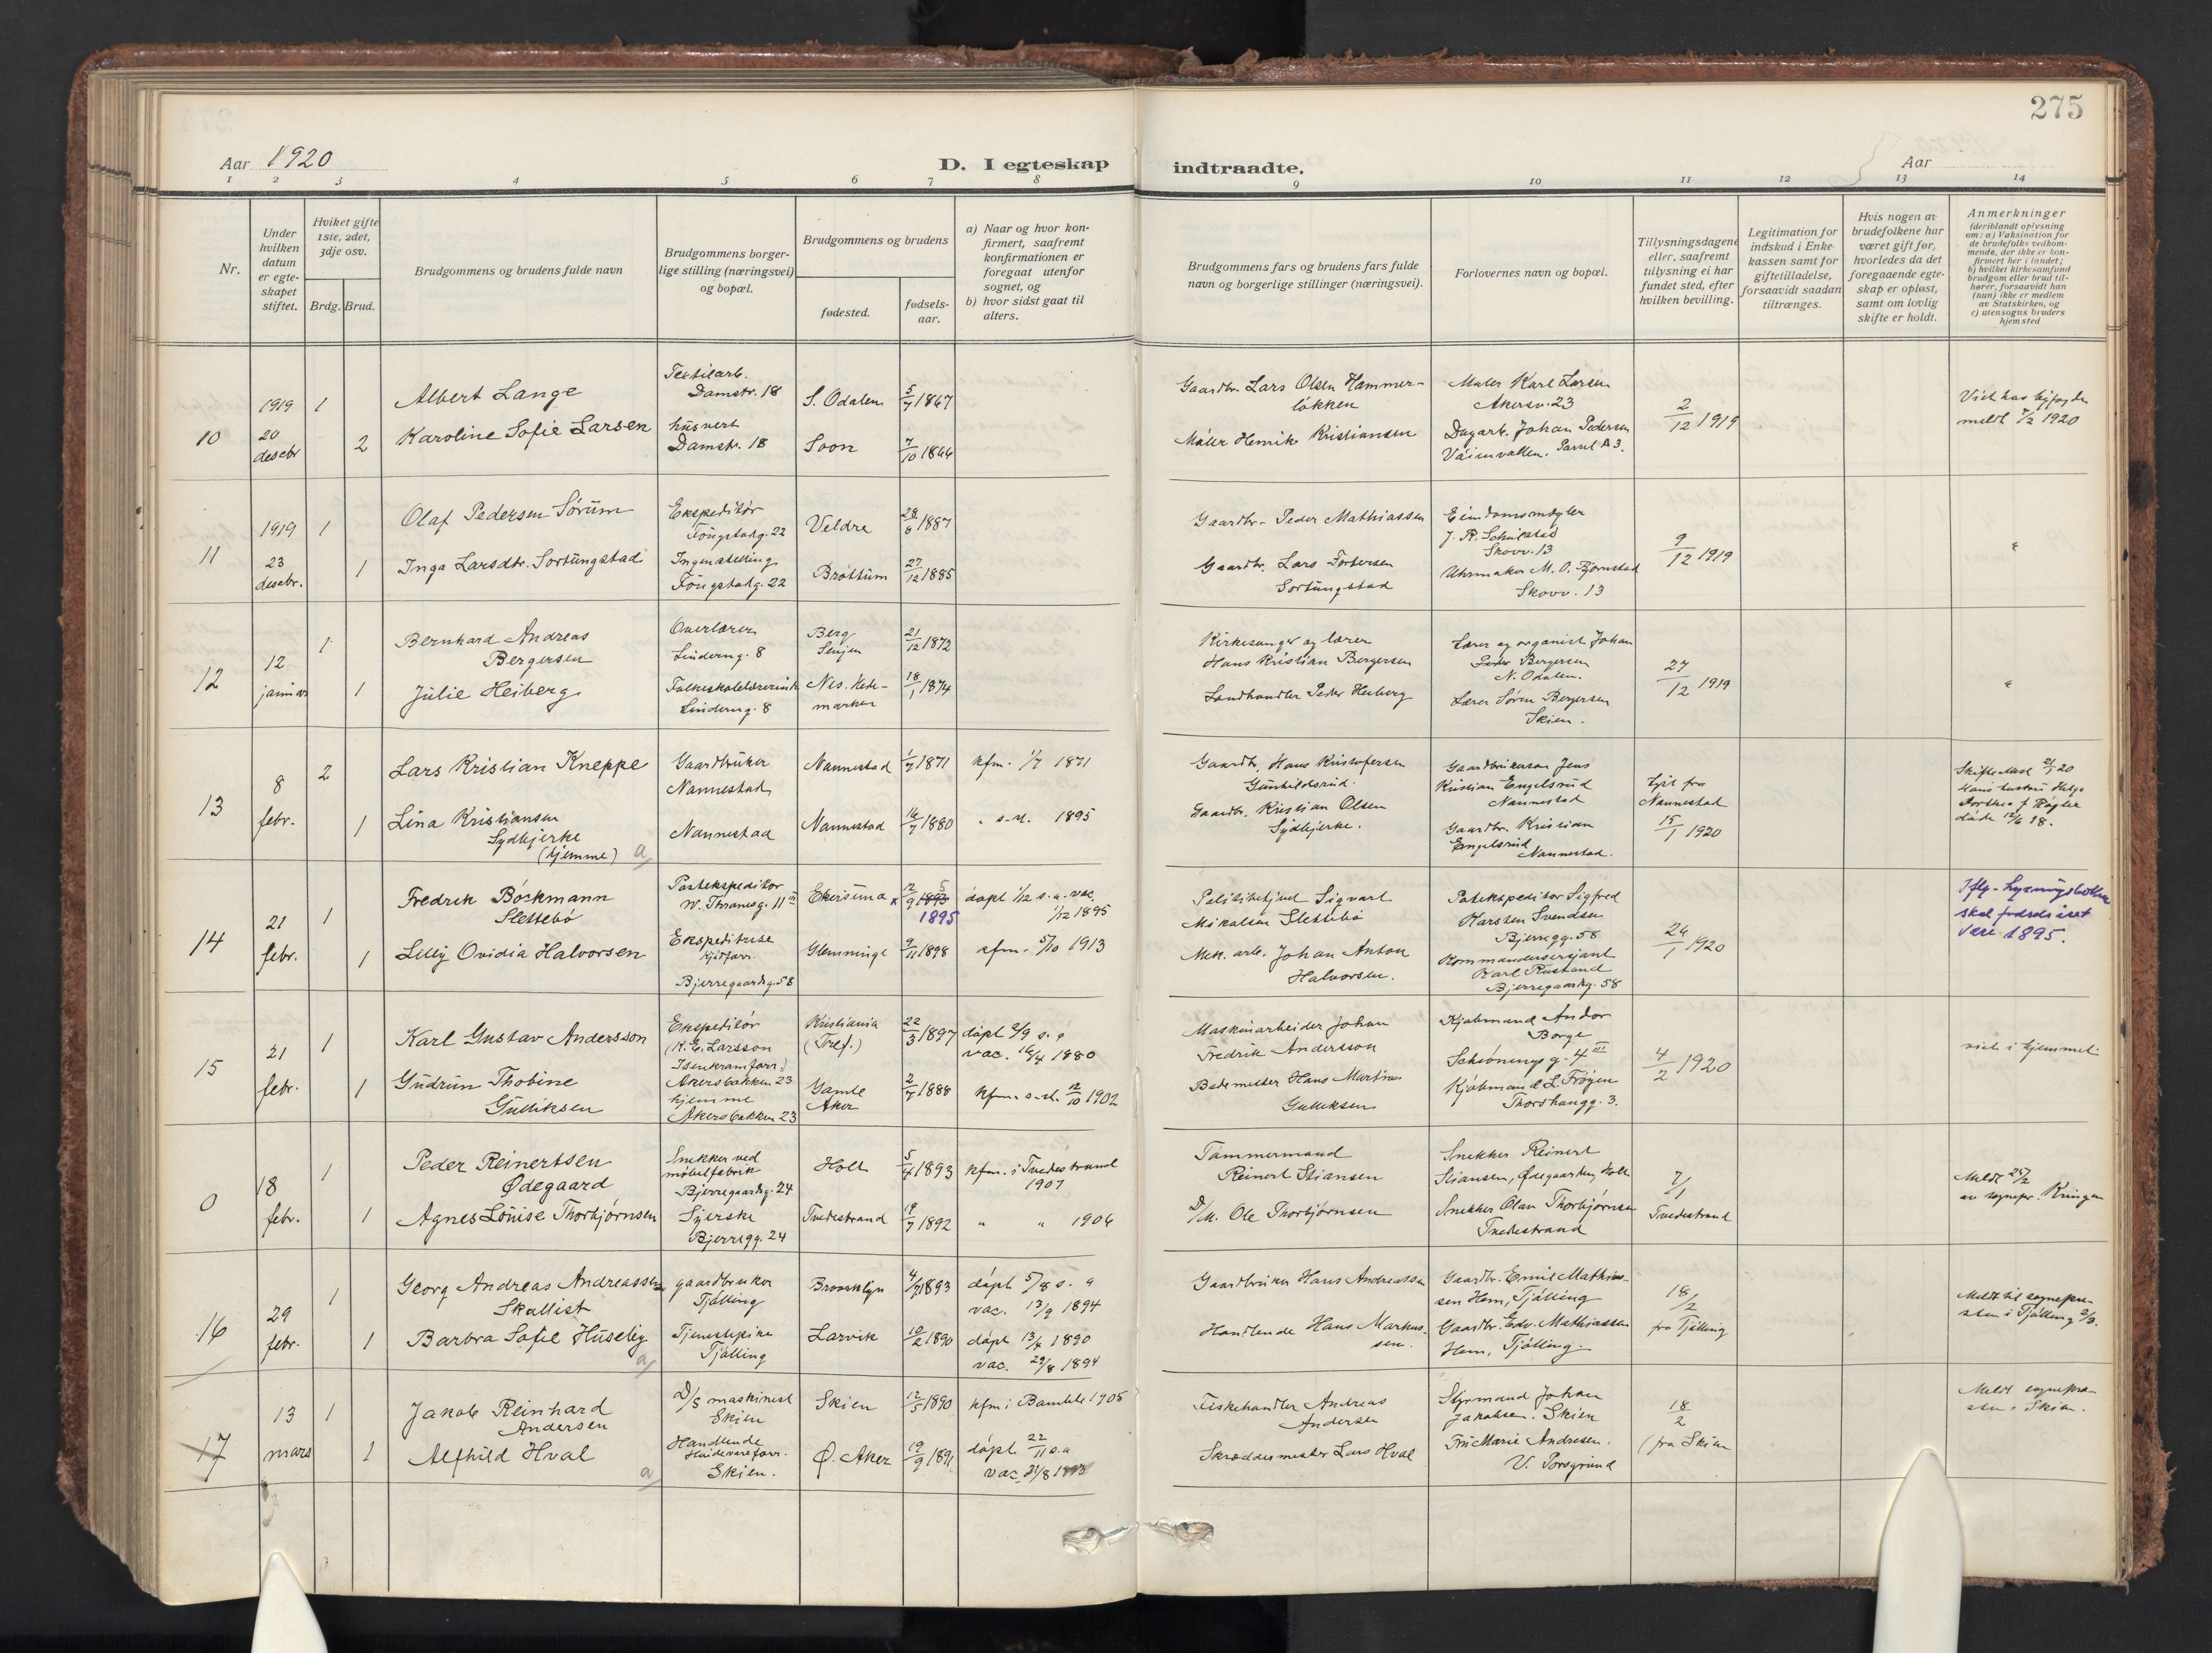 275
Aar 1920
D. I egteskap
indtraadte.
Aar
1 2 3 4 5 6 7 8 9 10 11 12 13 14
Nr.
Under
hvilken
datum
er egte-
skapet
stiftet.
Hviket gifte
1ste, 2det,
3dje osv.
Brdg. Brud.
Brudgommens og brudens fulde navn
Brudgommens borger-
lige stilling (næringsvei)
og bopæl.
Brudgommens og brudens
fødested.
fødsels-
aar.
a) Naar og hvor kon-
firmert, saafremt
konfirmationen er
foregaat utenfor
sognet, og
b) hvor sidst gaat til
alters.
Brudgommens fars og brudens fars fulde
navn og borgerlige stillinger (næringsvei).
Forlovernes navn og bopæl.
Tillysningsdagene
eller, saafremt
tillysning ei har
fundet sted, efter
hvilken bevilling.
Legitimation for
indskud i Enke-
kassen samt for
giftetilladelse,
forsaavidt saadan
tiltrænges.
Hvis nogen av
brudefolkene har
været gift før,
hvorledes da det
foregaaende egte-
skap er opløst,
samt om lovlig
skifte er holdt.
Anmerkninger
(deriblandt oplysning
om: a) Vaksination for
de brudefolks vedkom-
mende, der ikke er kon-
firmert her i landet;
b) hvilket kirkesamfund
brudgom eller brud til-
hører, forsaavidt han
(hun) ikke er medlem
av Statskirken, og
c) utensogns bruders
hjemsted
10
1919
20
desebr
1
Albert Lange
Textilarb.
Damstr. 18
S. Odalen
5/7 1867
Gaardbr. Lars Olsen Hammer-
løkken
Maler Karl Larsen
Akersv. 23
2/12 1919
meldt 7/2 1920
2
Karoline Sofie Larsen
husvert
Damstr. 18
Soon
7/10 1866
Maler Henrik Kristiansen
Dagarb. Johan Pedersen
11
1919
23
desebr.
1
Olaf Pedersen Sørum
Ekspeditør
22
Veldre
28/8 1887
Gaardbr. Peder Mathiassen
Eiendomsmægler
Skovv. 13
9/12 1919
"
1
Inga Larsdtr. Sortungstad
Ingen stilling
22
Brøttum
27/12 1885
Gaardbr. Lars Torbersen
Sortungstad
Uhrmaker M. O. Bjørnstad
Skovv. 13
12
12
januar
1
Bernhard Andreas
Bergersen
Overlærer
Linderng. 8
Berg
Senjen
21/12 1872
Kirkesanger og lærer
Hans Kristian Bergersen
Lærer og organist Johan
Peder Bergersen
N. Odalen.
27/12 1919
"
1
Julie Heiberg
Folkeskolelærerinde
Linderng. 8
Nes. Hede-
marken
18/1 1874
Landhandler Peder Heiberg
Lærer Søren Bergersen
Skien.
13
8
febr.
2
Lars Kristian Kneppe
Gaardbruker
Nannestad
Nannestad
1/7 1871
kfm. 1/7 1871
Gaardbr. Hans Kristofersen
Gunhildsrud.
Gaardbrukersøn Jens
Kristian Engelsrud
Nannestad
Lyst fra
Nannestad
15/1 1920
Skifteattest 21/1 20
døde 12/6 18.
1
Lina Kristiansen
Sydkjerke
(hjemme) a
Nannestad
Nannestad
16/7 1880
" s. st. 1895
Gaardbr. Kristian Olsen
Sydkjerke.
Gaardbr. Kristian
Engelsrud
Nannestad.
14
21
febr.
1
Fredrik Böckmann
Slettebö
Postekspeditør
W. Thranesg. 11 III
Ekersund
12/9 1893
1895
døpt 1/12 s. a. vac.
1/12 1895
Politibetjent Sigvart
Mikalsen Slettebö
Postekspeditør Sigfred
Karsten Svendsen
Bjerregg. 58
24/1 1920
Iflg. Lysningsboken
skal fødselsåret
være 1895.
1
Lilly Ovidia Halvorsen
Ekspeditrise
Kjødforr.
Bjerregaardsg. 58
Glemminge
9/11 1898
kfm. 5/10 1913
Mek. arb. Johan Anton
Halvorsen.
Kommandersersjant
Karl Rustand
Bjerregaardsg. 58
15
21
febr.
1
Karl Gustav Andersson
Ekspeditør
(K. E. Larsson
Isenkramforr.)
Akersbakken 23
Kristiania
(Tref.)
22/3 1897
døpt 2/9 s. a
vac. 16/4 1880
Maskinarbeider Johan
Fredrik Andersson
Kjøbmand Andor
Borge
Schøningsg. 4 III
4/2 1920
viet i hjemmet.
1
Gudrun Thobine
Gulliksen
hjemme
Akersbakken 23
Gamle
Aker
2/7 1888
kfm. s. st. 12/10 1902
Bademester Hans Martin
Gulliksen
Kjøbmand L. Frøyen
Thorshaugg. 3.
0
18
febr.
1
Peder Reinertsen
Ødegaard
Snekker ved
møbelfabrik
Bjerregaardsg. 24
Holt
5/4 1893
kfm. i Tvedestrand
1907
Tømmermand
Reinert Stiansen
Snekker Reinert
Stiansen, Ødegaarden, Holt
7/1
Tvedestrand
Meldt 25/2
av sognepr. Kringen
1
Agnes Louise Thorbjørnsen
Syerske
Bjerregg. 24
Tvedestrand
19/7 1892
" " 1906
D/M. Ole Thorbjørnsen
Snekker Olav Thorbjørnsen
Tvedestrand
16
29
febr.
1
Georg Andreas Andreassen
Skallist
gaardbruker
Tjølling
Brooklyn
4/7 1893
døpt 5/8 s. a
vac. 13/9 1894
Gaardbruker Hans Andreassen
Gaardbr. Emil Mathias-
sen Hem, Tjølling
18/2
fra Tjølling
Meldt til sognepre-
sten i Tjølling 2/3.
1
Barbra Sofie Huseby
a
Tjenestepike
Tjølling
Larvik
10/2 1890
døpt 13/4 1890
vac. 29/8 1894
Handlende Hans Markus-
sen.
Gaardbr. Edv. Mathiassen
Hem, Tjølling.
17
13
mars
1
Jakob Reinhard
Andersen
D/S maskinist
Skien
Skien
12/5 1890
kfm i Bamble 1905
Fiskehandler Andreas
Andersen
Styrmand Johan
Jakobsen. Skien
18/2
(fra Skien
Meldt sognepre-
sten i Skien.
1
Alfhild Hval
a
Handlende
Hvidevareforr.
Skien.
Ø. Aker
19/9 1891
døpt 22/11 s. a
vac. 31/8 1893
Skræddermester Lars Hval
Fru Marie Andresen.
V. Porsgrund